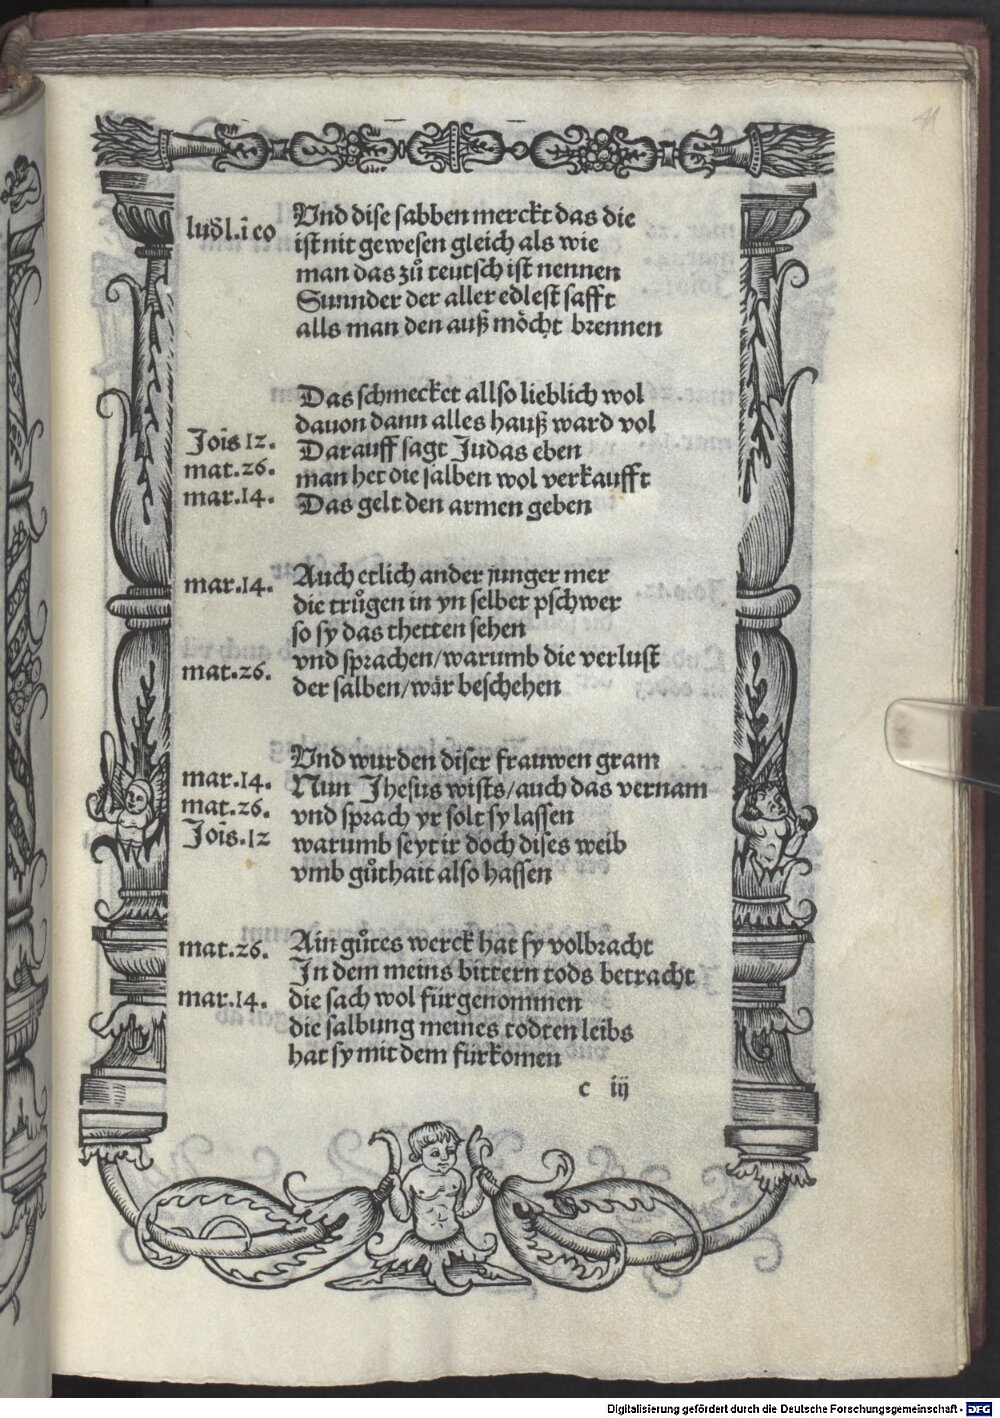 41
ludl.i co Vnd dise sabben merckt das die
ist nit gewesen gleich als wie
man das zů teutsch ist nennen
Sunnder der aller edlest safft
alls man den auß möcht brennen
Das schmecket allso lieblich wol
dauon dann alles hauß ward vol
Jois 12. Darauff sagt Judas eben
mat.26. man het die salben wol verkaufft
mar.14. Das gelt den armen geben
mar.14. Auch etlich ander junger mer
die trůgen in yn selber pschwer
so sy das thetten sehen
vnd sprachen/warumb die verlust
mat.26. der salben/wär beschehen
Vnd wurden diser frauwen gram
mar.14. Nun Jhesus wists/auch das vernam
mat.26. vnd sprach yr solt sy lassen
Jois.12 warumb seyt ir doch dises weib
vmb gůthait also hassen
mat.26. Ain gůtes werck hat sy volbracht
In dem meins bittern tods betracht
mar.14. die sach wol fürgenommen
die salbung meines todten leibs
hat sy mit dem fürkomen
c iij
Digitalisierung gefördert durch die Deutsche Forschungsgemeinschaft - DFG